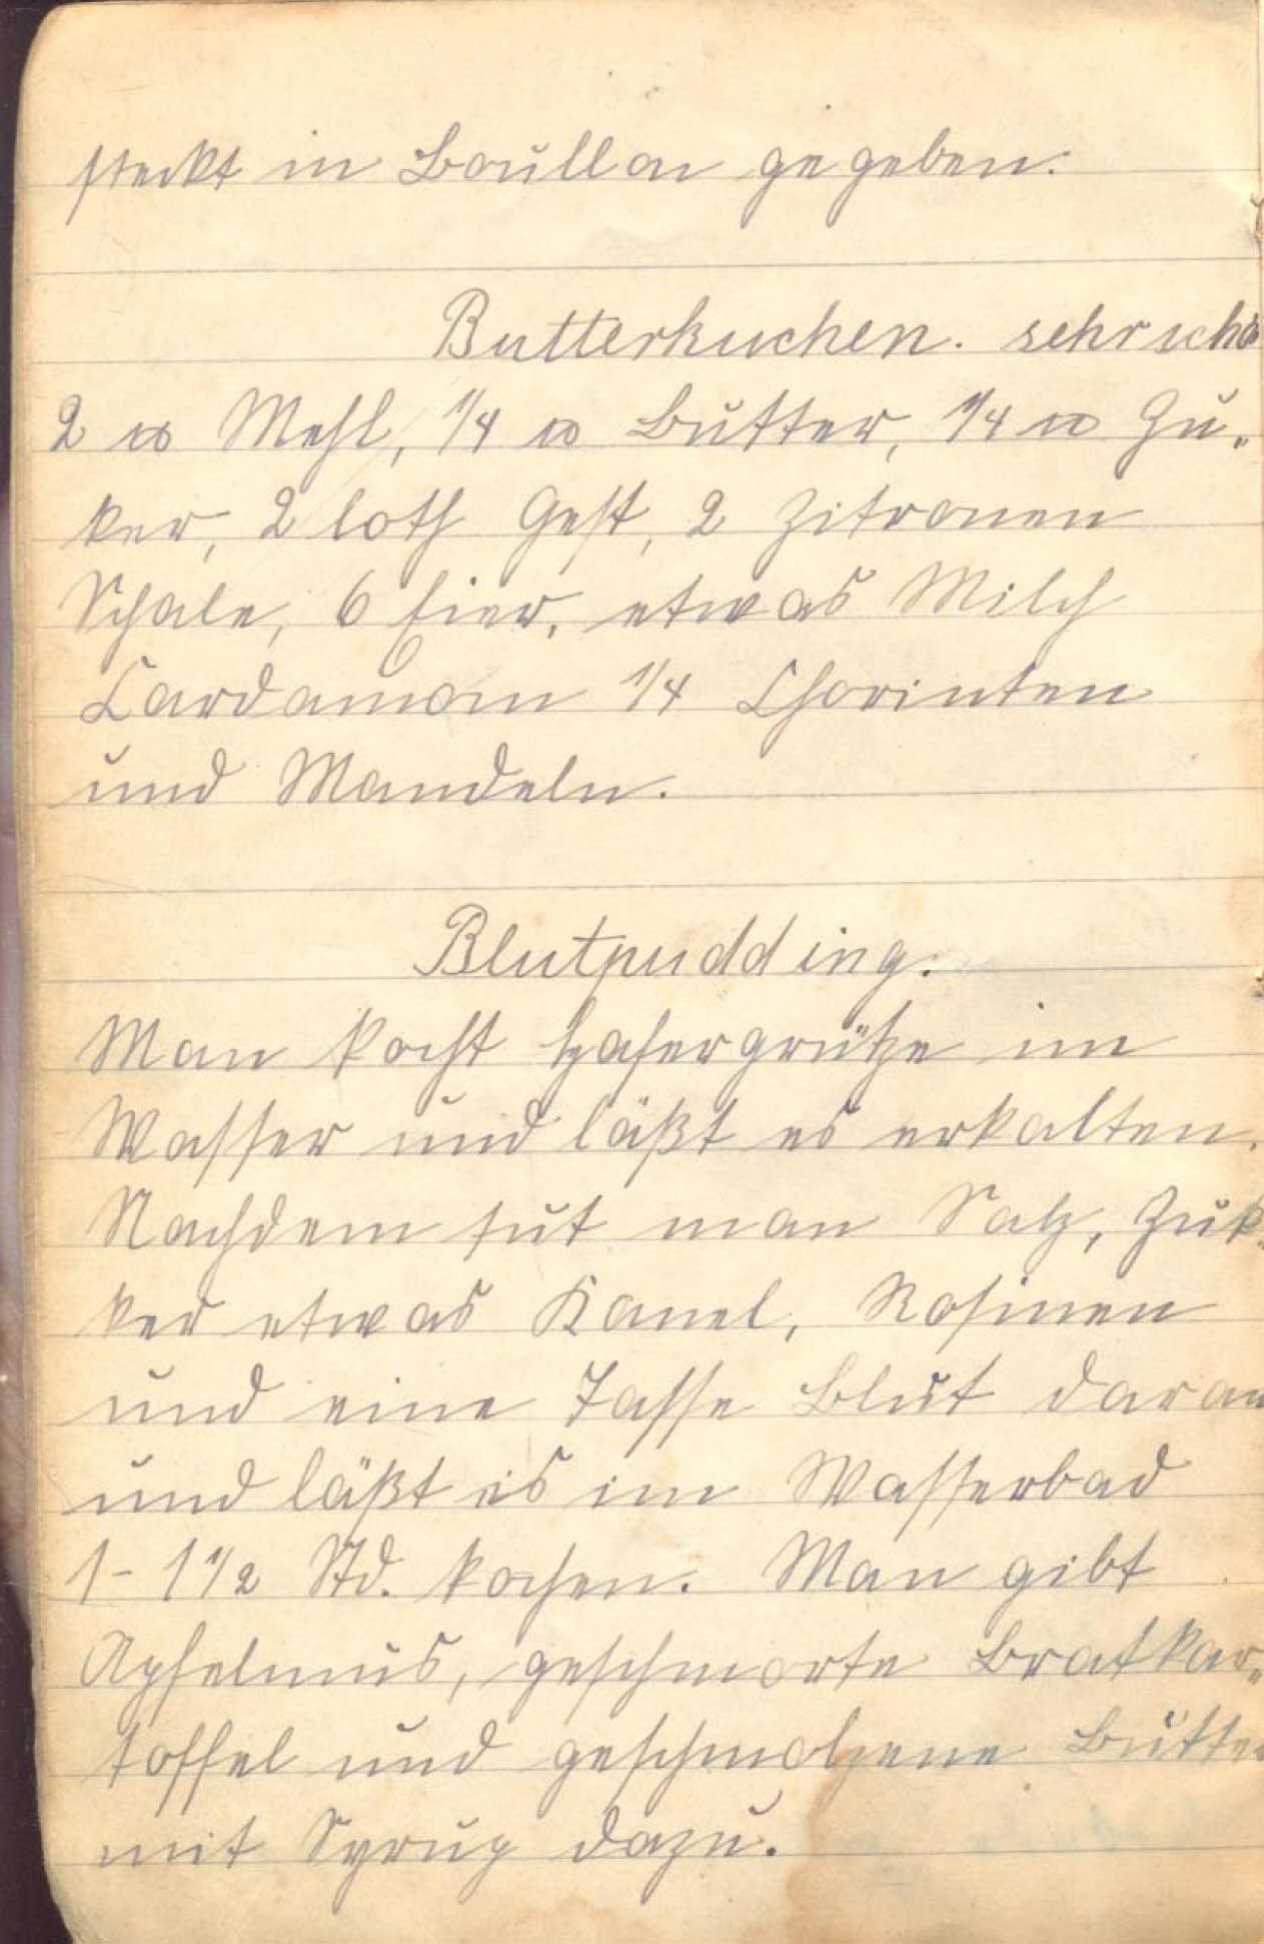 steckt in Boullon gegeben.
Butterkuchen. sehr schö
2 ℔ Mehl, 1/4 ℔ Butter, 1/4 ℔ Zu„
ker, 2 loth Gest, 2 Zitronen
Schale, 6 Eier, etwas Milch
Cardamom 1/4 Chorinten
und Mandeln.
Blutpudding.
Man kocht Hafergrütze im
Wasser und läßt es erkalten.
Nachdem tut man Salz, Zuk„
ker etwas Kanel, Rosinen
und eine Tasse Blut daran
und läßt es im Wasserbad
1-1 1/2 Std. kochen. Man gibt
Apfelmus, geschmorte Bratkar„
toffel und geschmolzene Butter
mit Syrup dazu.